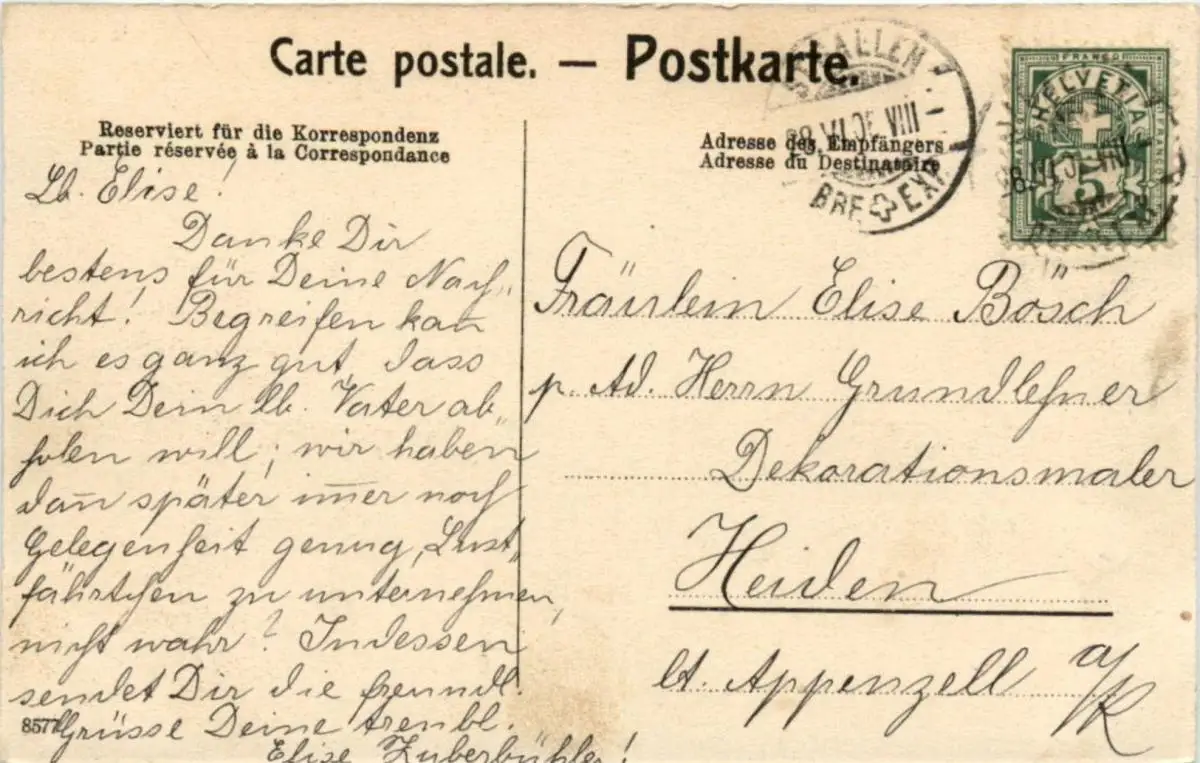 Carte postale. — Postkarte.
Reserviert für die Korrespondenz
Partie réservée à la Correspondance
Lb. Elise!
Danke Dir
bestens für Deine Nach„
richt! Begreifen kan̄
ich es ganz gut, dass
Dich Dein lb. Vater ab„
holen will; wir haben
dan̄ später im̄er noch
Gelegenheit genug, Lust„
fährtchen zu unternehmen,
nicht wahr? Indessen
sendet Dir die freundl.
Grüsse Deine treubl.
Elise Zuberbühler!
8577
Adresse des Empfängers
Adresse du Destinataire
Fräulein Elise Bösch
p. Ad. Herrn Grundlehner
Dekorationsmaler
Heiden
Ct. Appenzell a/R
ST. GALLEN
VIII
BRF. EXP.
FRANCO
HELVETIA
5